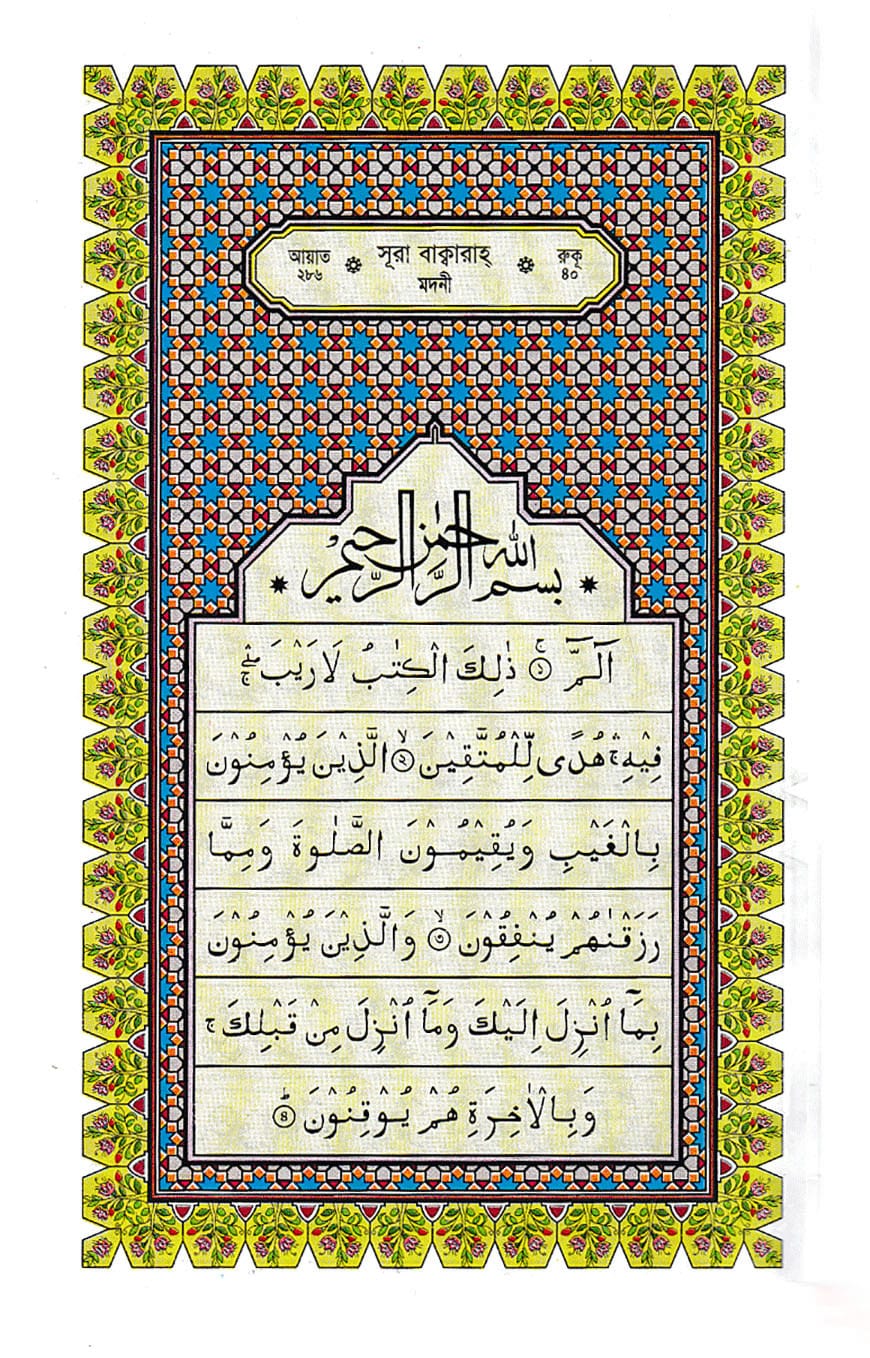 আয়াত ২৮৬ ۞ সূরা বাক্বারাহ্ মদনী ۞ রুকূ ৪০
بِسْمِ اللهِ الرَّحْمٰنِ الرَّحِيْمِ
الٓمّٓ ۚ﴿١﴾ ذٰلِكَ الْكِتٰبُ لَا رَيْبَ ۛۖۚ
فِيْهِ ۛۚ هُدًى لِّلْمُتَّقِيْنَ ۙ﴿٢﴾ الَّذِيْنَ يُؤْمِنُوْنَ
بِالْغَيْبِ وَيُقِيْمُوْنَ الصَّلٰوةَ وَمِمَّا
رَزَقْنٰهُمْ يُنْفِقُوْنَ ۙ﴿٣﴾ وَالَّذِيْنَ يُؤْمِنُوْنَ
بِمَآ اُنْزِلَ اِلَيْكَ وَمَآ اُنْزِلَ مِنْ قَبْلِكَ ۚ
وَبِالْاٰخِرَةِ هُمْ يُوْقِنُوْنَ ؕ﴿٤﴾